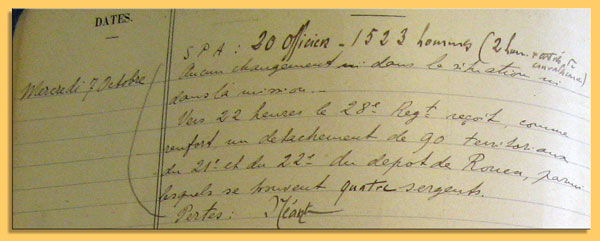 DATES.
S P A : 20 officiers - 1523 hommes (2 hom.
Mercredi 7 Octobre
Aucun changement ni dans la situation ni
dans la mission. -
Vers 22 heures le 28e Regt. reçoit, comme
renfort un détachement de 90 territoriaux
du 21e et du 22e du dépot de Rouen, parmi
lesquels se trouvent quatre sergents.
Pertes : Néant